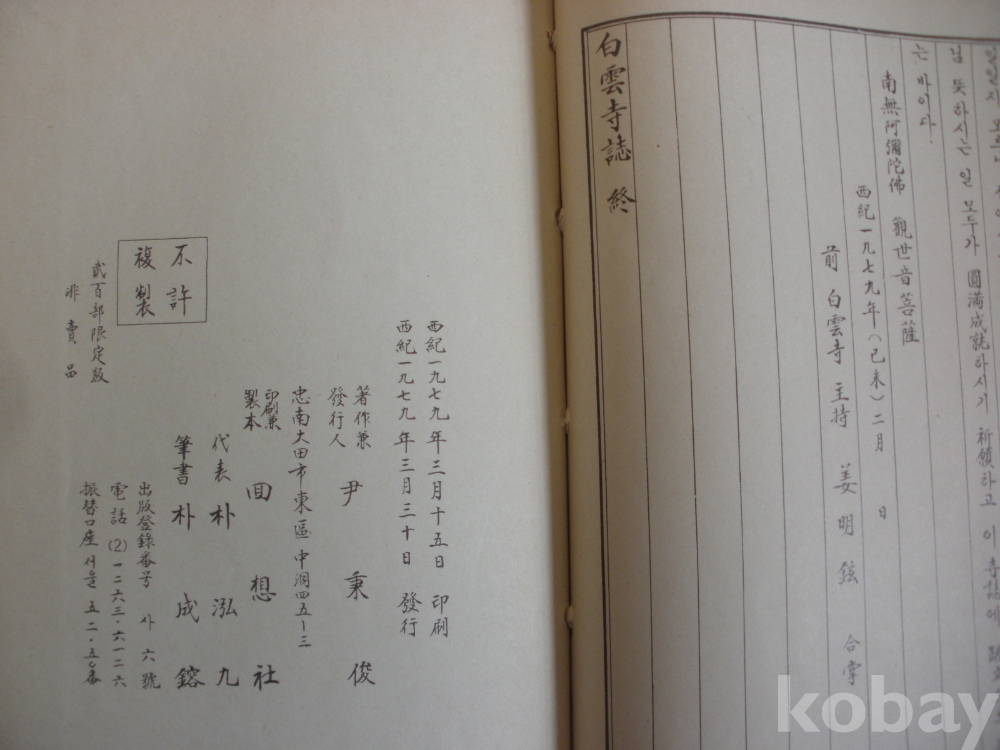 님 뜻하시는 일 모두가 圓滿成就하시기 祈願하고 이 寺誌에
는 바이다.
南無阿彌陀佛 觀世音菩薩
西紀一九七九年(己未)二月 日
前 白雲寺 主持 姜明鉉 合掌
白雲寺誌 終
西紀一九七九年三月十五日 印刷
西紀一九七九年三月三十日 發行
著作兼
發行人 尹秉俊
忠南大田市東區中洞四五ー三
印刷兼
製本 回想社
代表 朴泓九
筆書 朴成鎔
出版登錄番号 사六號
電話(2)一二六三·六一二六
振替口座 서울 五二·五〇番
不許
複製
貳百部限定版
非賣品
kobay